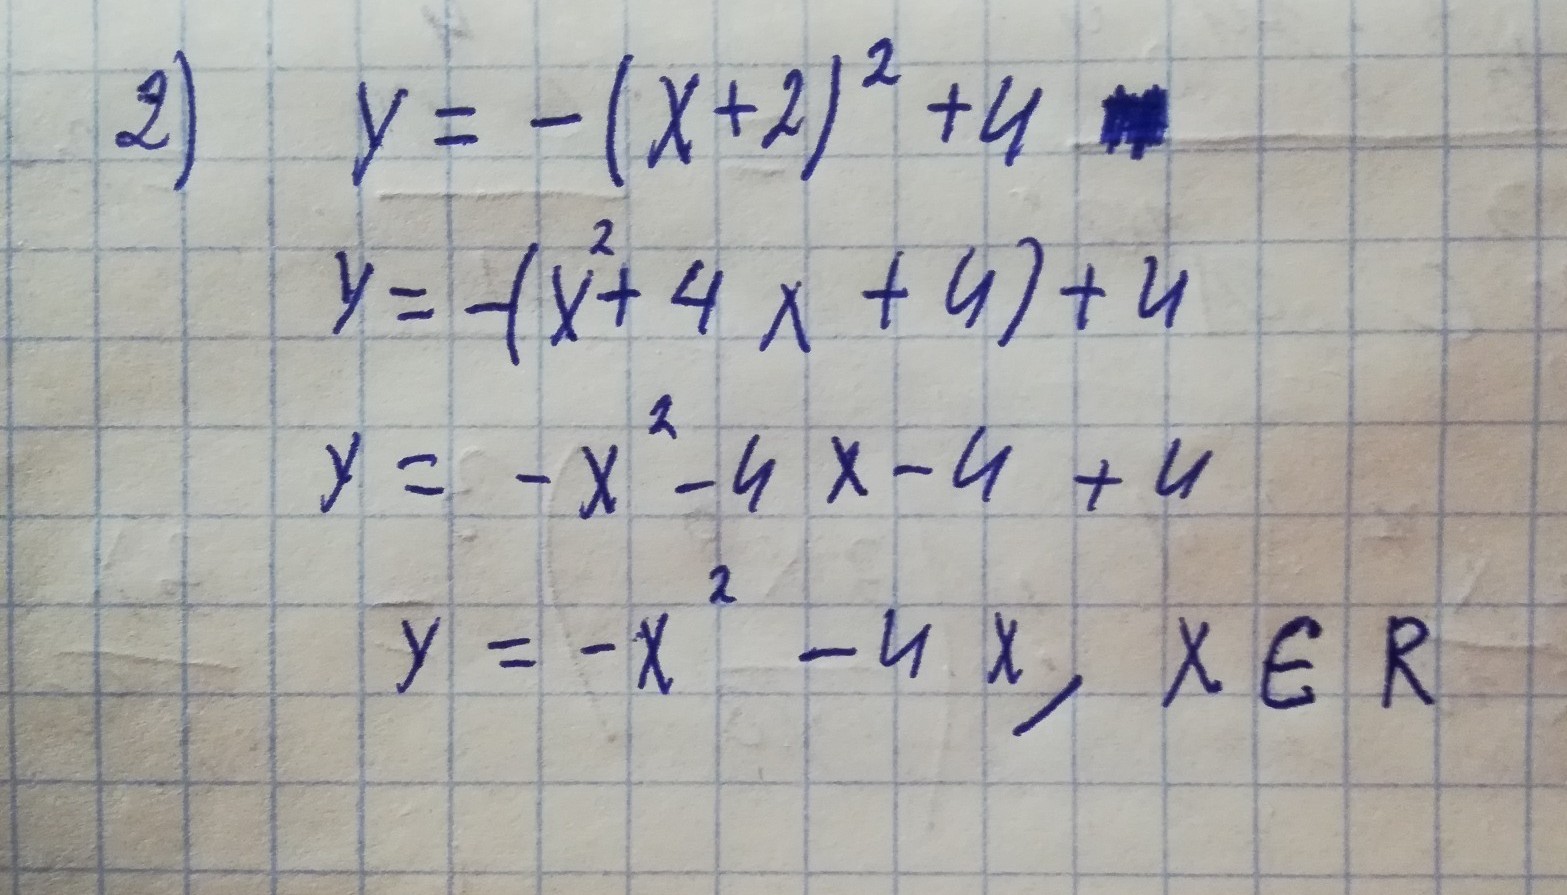 2) y = -(x+2)² +4
y = -(x²+ 4 x + 4) + 4
y = -x² -4 x -4 +4
y = -x² -4 x, x ∈ R